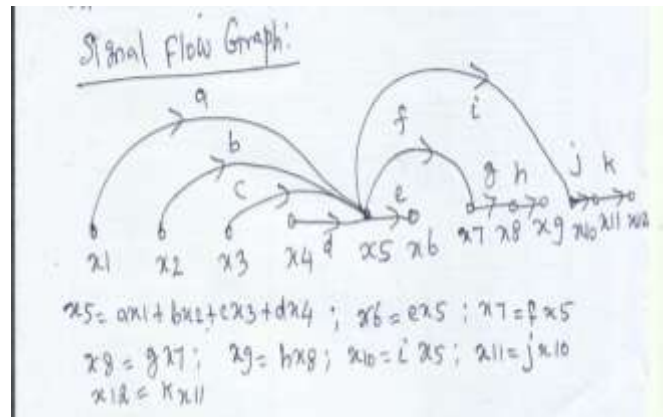 Signal Flow Graph:
a
i
f
b
c
g h
j k
e
d
x1 x2 x3 x4 x5 x6 x7 x8 x9 x10 x11 x12
x5= ax1+bx2+cx3+dx4 ; x6=ex5 ; x7=fx5
x8=gx7; x9=hx8; x10=ix5; x11=jx10
x12=Kx11